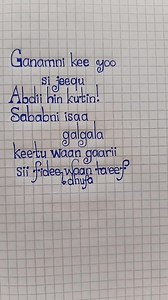 Ganamni kee yoo
si jeequ
Abdii hin kutin!
Sababni isaa
galgala
keetu waan gaarii
sii fidee waan ta'eef
dhufa